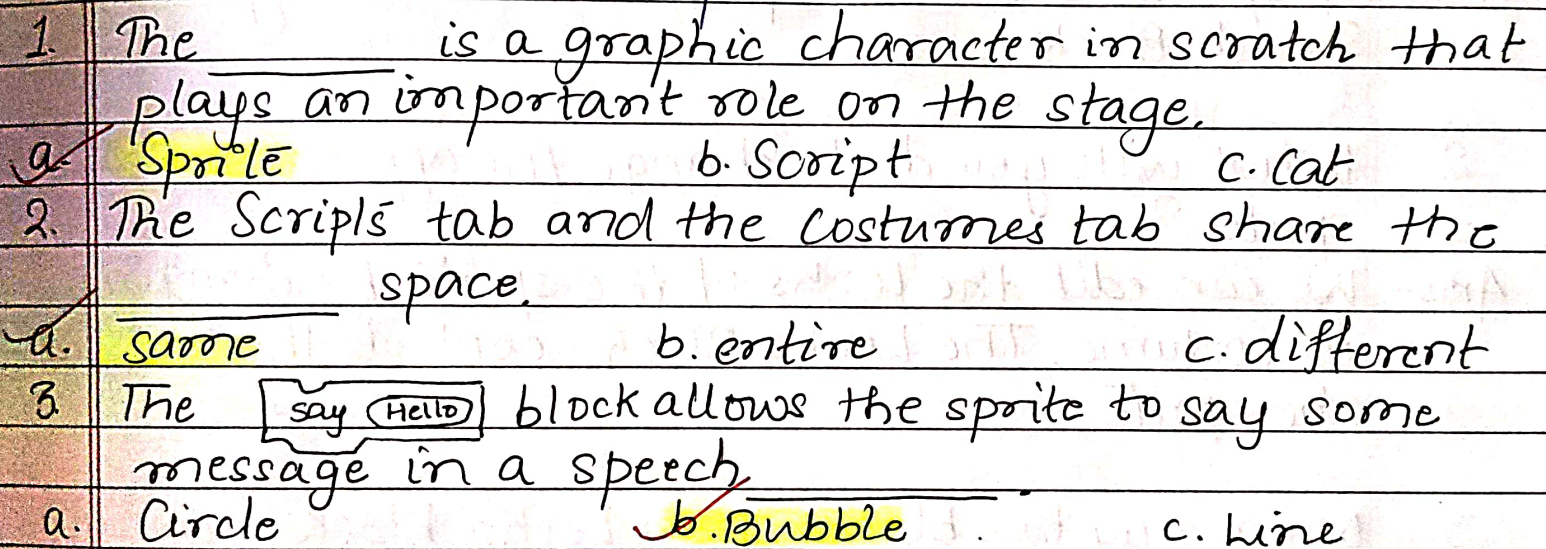 1. The ________ is a graphic character in scratch that
plays an important role on the stage.
a. Sprite b. Script c. Cat
2. The Scripts tab and the Costumes tab share the
________ space.
a. same b. entire c. different
3. The say Hello block allows the sprite to say some
message in a speech ________.
a. Circle b. Bubble c. Line